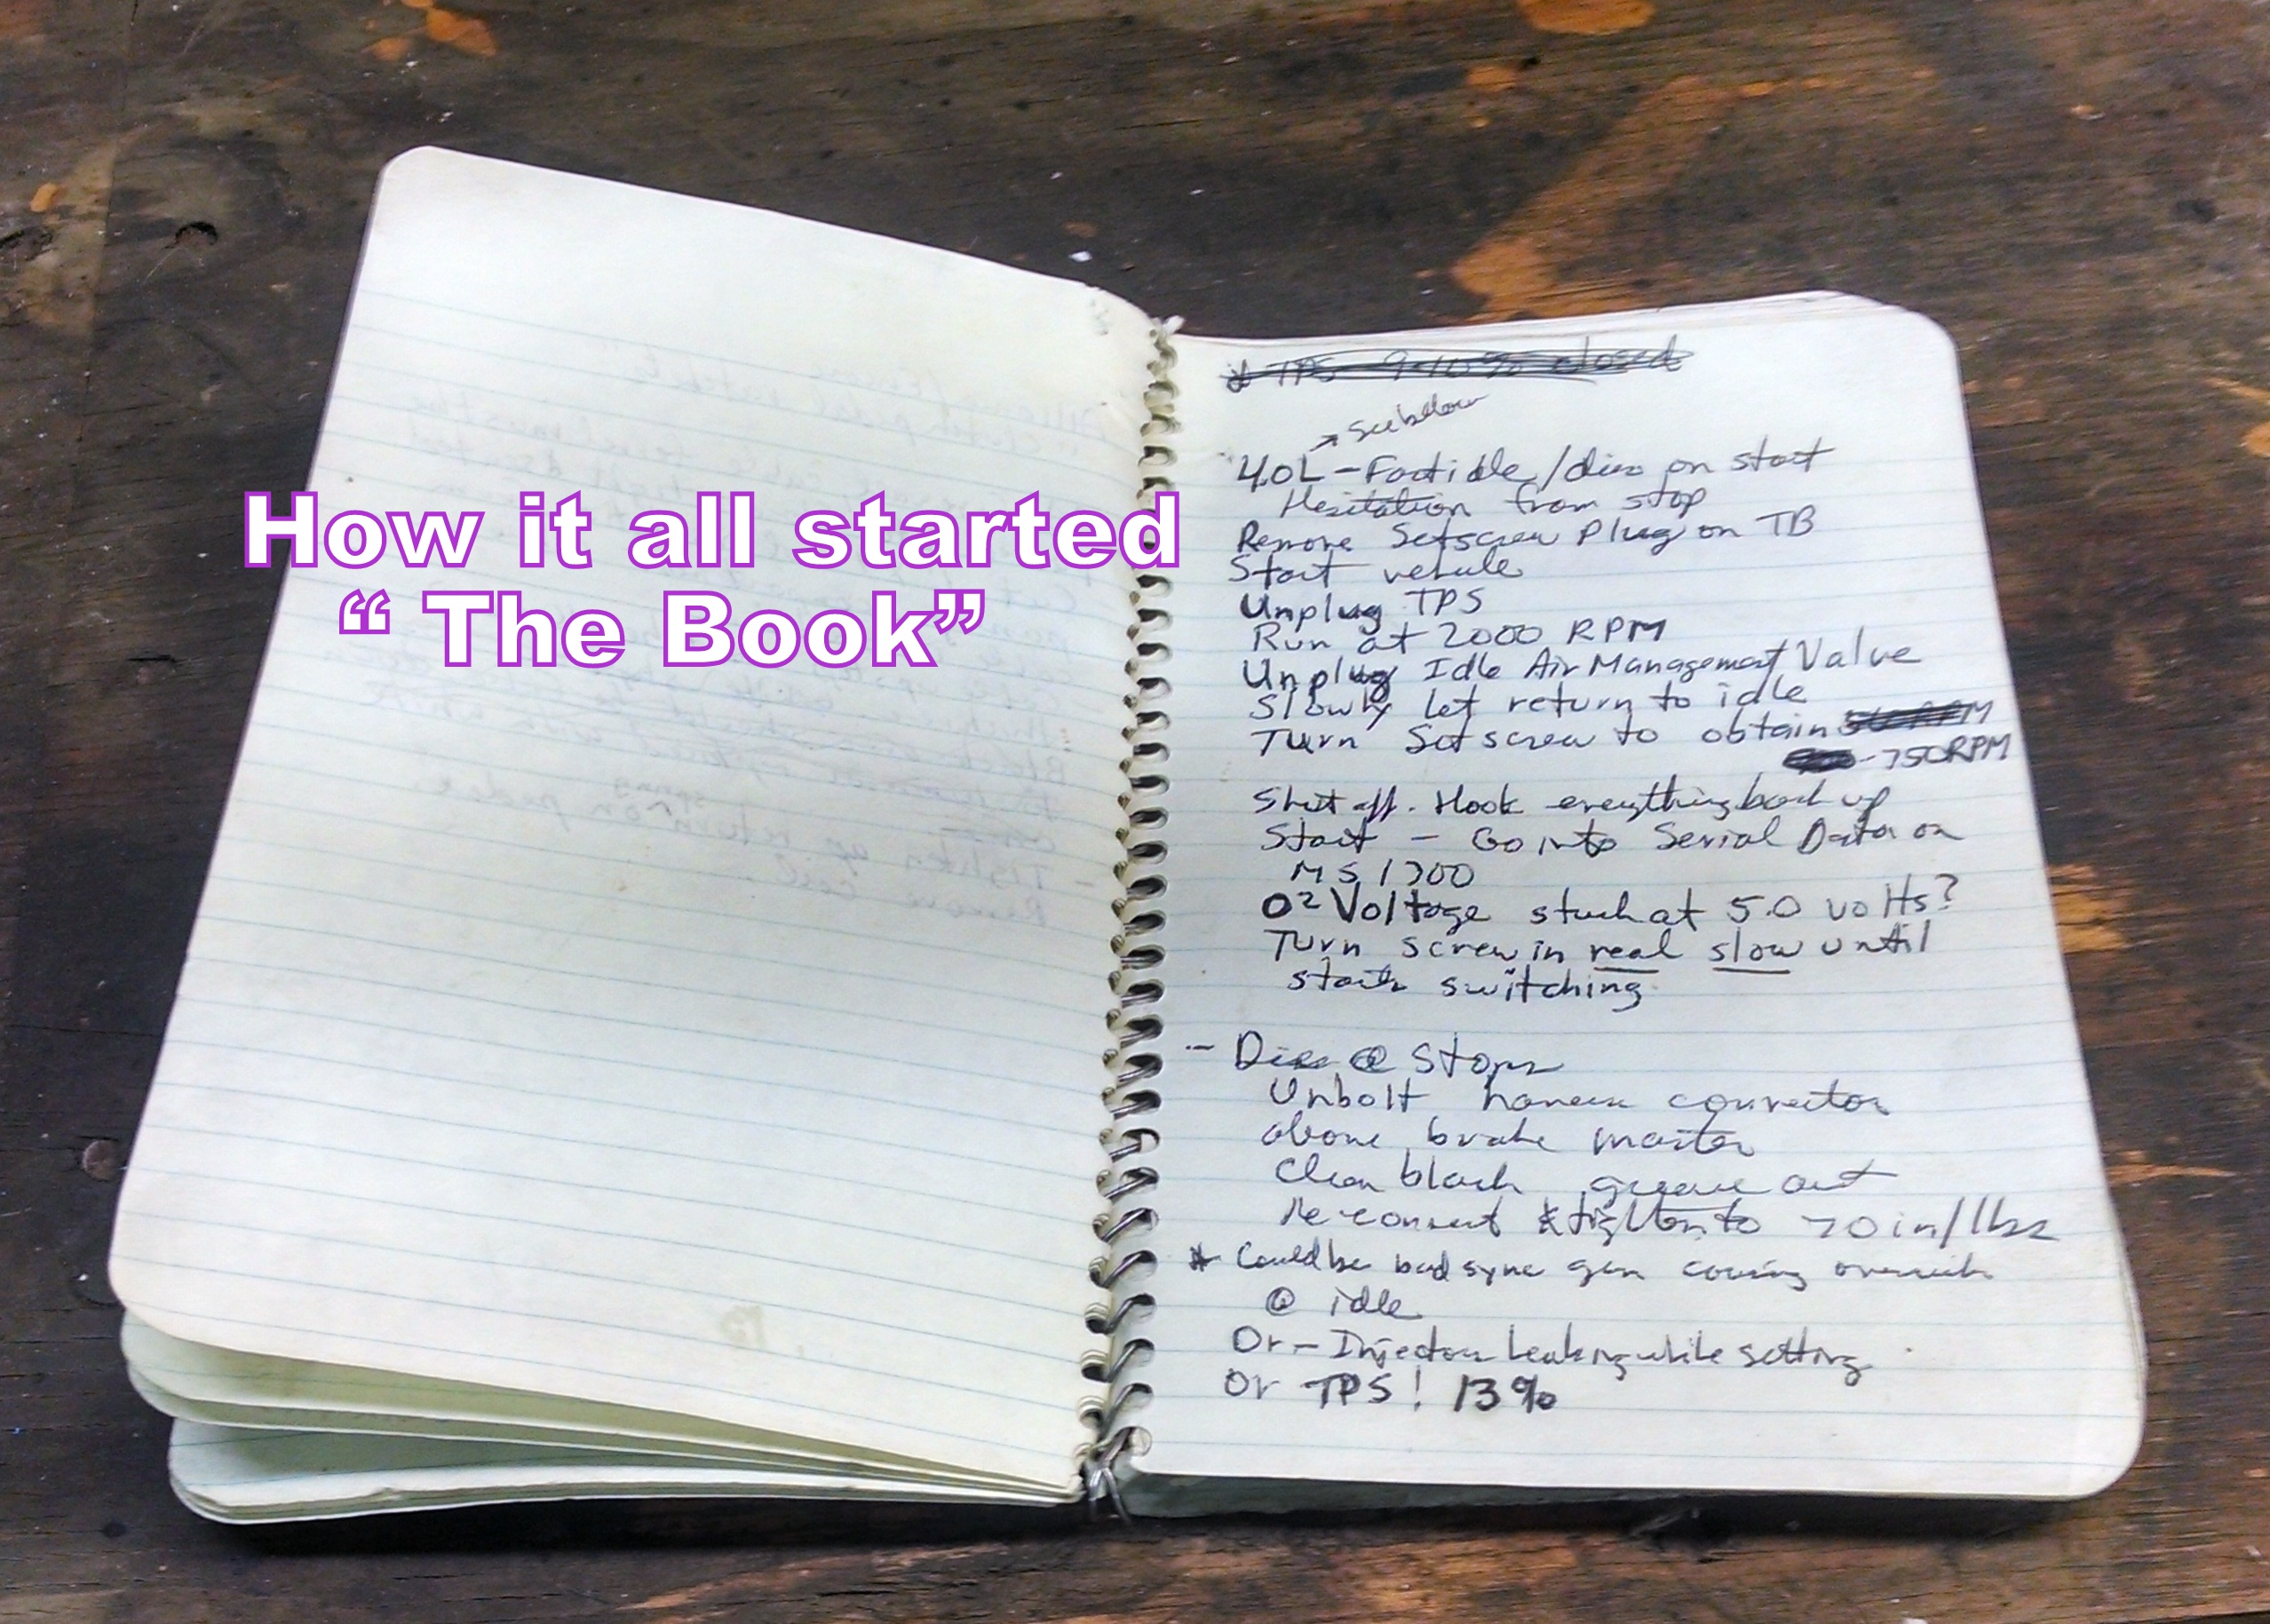 How it all started
“ The Book”
* TPS 9-10% closed
→ See below
4.0L - Fast idle / dies on start
Hesitation from stop
Remove Setscrew Plug on TB
Start vehicle
Unplug TPS
Run at 2000 RPM
Unplug Idle Air Management Valve
Slowly let return to idle
Turn Set screw to obtain
-750RPM
Shut off. Hook everything back up
Start - Go into Serial Data on
MS1700
O² Voltage stuck at 5.0 volts?
Turn screw in real slow until
starts switching
- Dies @ Stops
Unbolt harness connector
above brake master
Clean black grease out
Re-connect & tighten to 70 in/lbs
* Could be bad sync gen causing
@ idle
Or - Injectors leaking while setting
Or TPS! 13%